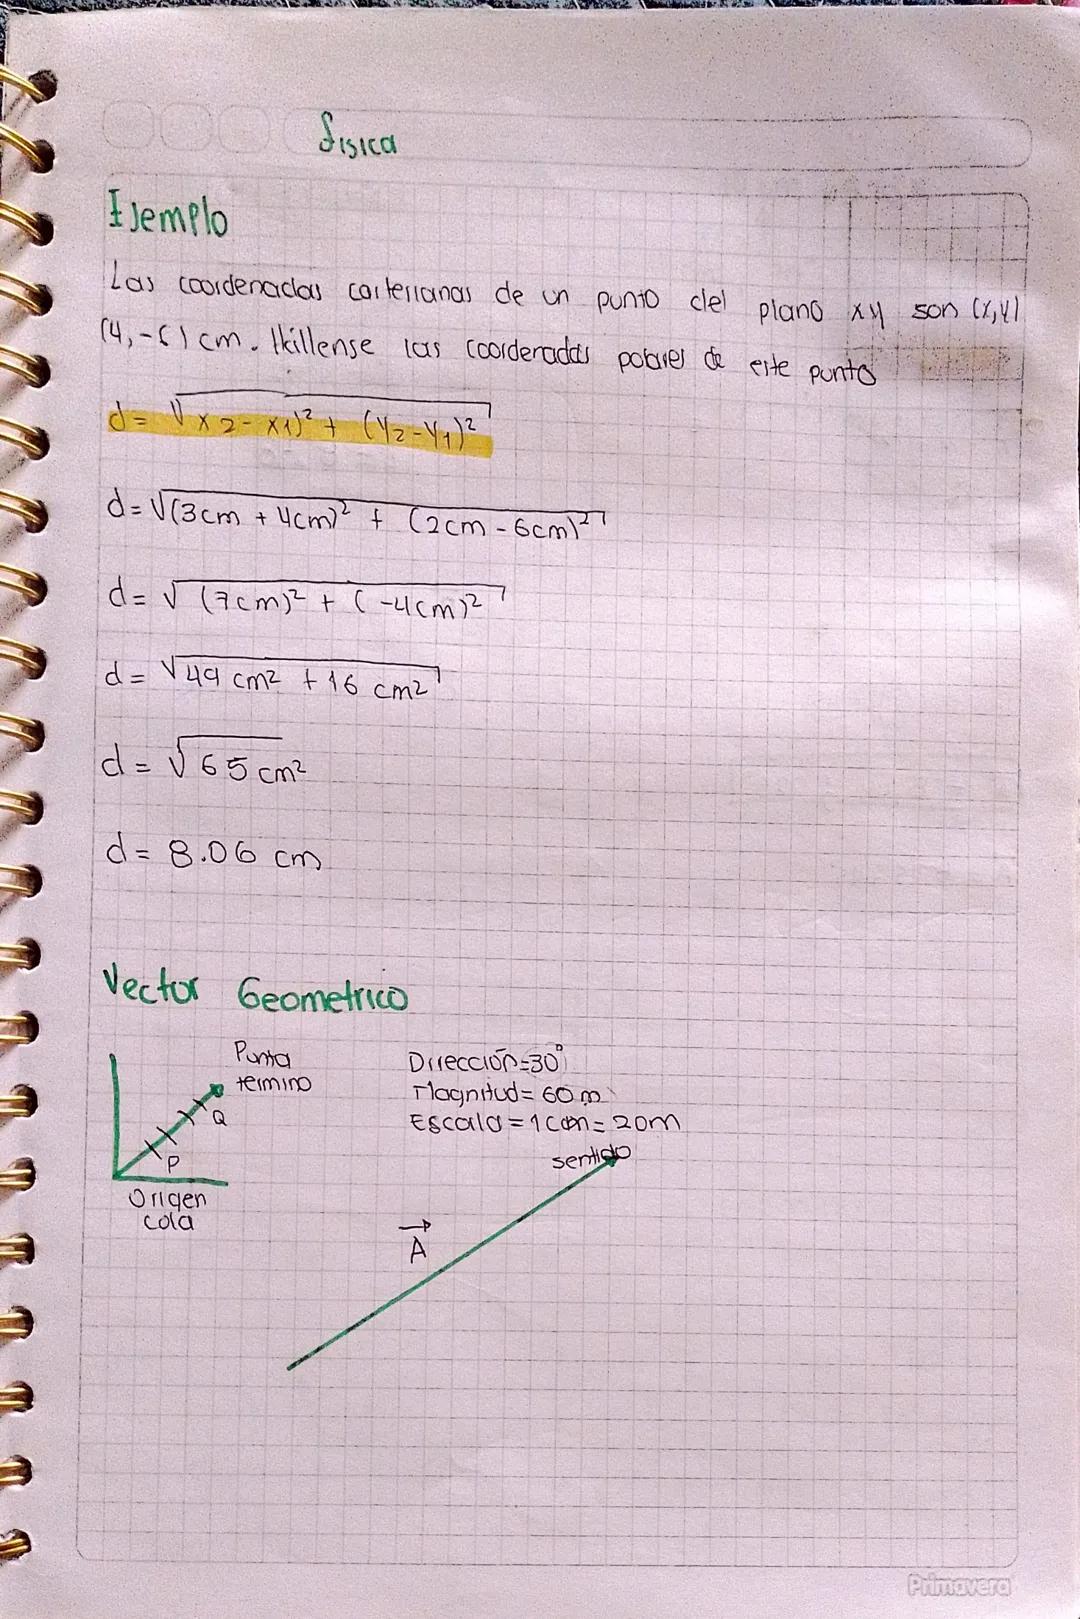 Fisica
Ejemplo
Las coordenadas cartesianas de un punto del plano xy son (x,y)
(4,-6) cm. Hállense las coordenadas polares de este punto
d = √x2 - x1)² + (y2 - y1)²
d = √(3cm + 4cm)² + (2cm - 6cm)²
d = √(7cm)² + (-4cm)²
d = √49 cm² + 16 cm²
d = √65 cm²
d = 8.06 cm
Vector Geometrico
Punta
termino
Q
P
Origen
cola
Dirección=30°
Magnitud= 60 m
Escala = 1 cm = 20m
sentido
A
Primavera